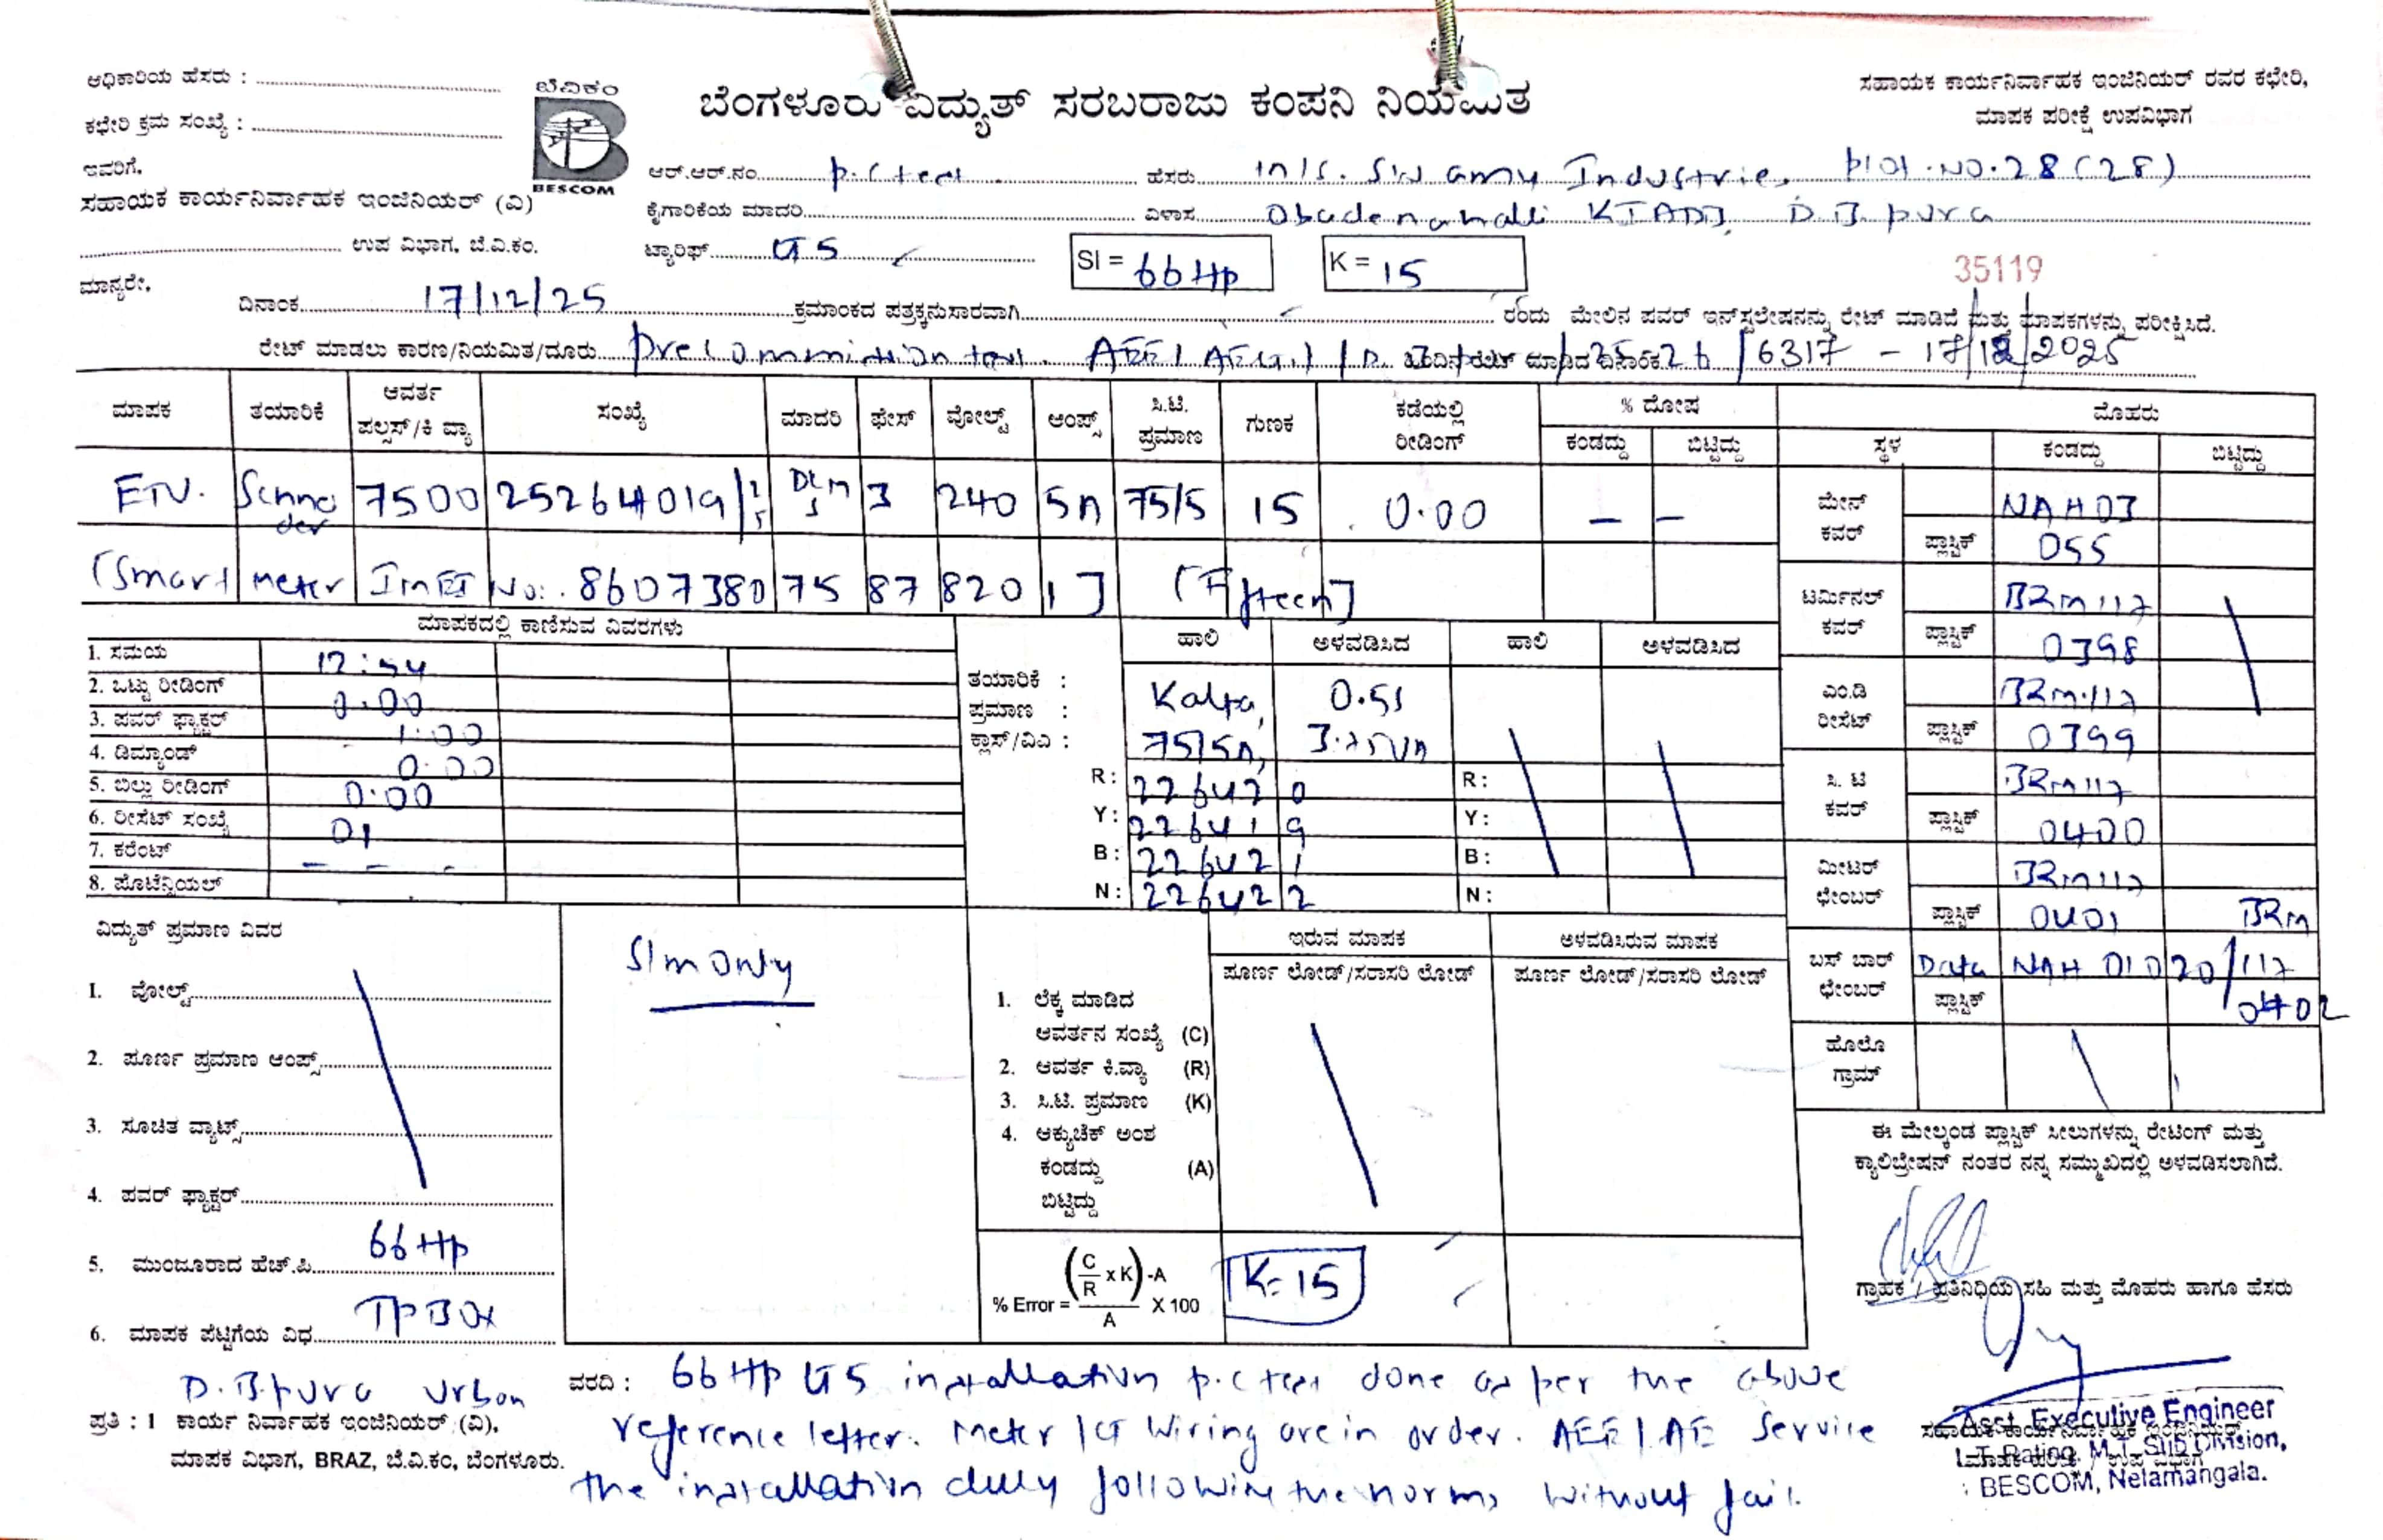 ಅಧಿಕಾರಿಯ ಹೆಸರು :
ಕಛೇರಿ ಕ್ರಮ ಸಂಖ್ಯೆ :
ಇವರಿಗೆ,
ಸಹಾಯಕ ಕಾರ್ಯನಿರ್ವಾಹಕ ಇಂಜಿನಿಯರ್ (ವಿ)
ಉಪ ವಿಭಾಗ, ಬೆ.ವಿ.ಕಂ.
ಮಾನ್ಯರೇ,
ಬೆವಿಕಂ
BESCOM
ಬೆಂಗಳೂರು ವಿದ್ಯುತ್ ಸರಬರಾಜು ಕಂಪನಿ ನಿಯಮಿತ
ಸಹಾಯಕ ಕಾರ್ಯನಿರ್ವಾಹಕ ಇಂಜಿನಿಯರ್ ರವರ ಕಛೇರಿ,
ಮಾಪಕ ಪರೀಕ್ಷೆ ಉಪವಿಭಾಗ
ಆರ್.ಆರ್.ನಂ. p.c test ಹೆಸರು M/s. Swamy Industries Plot.No.28 (28)
ಕೈಗಾರಿಕೆಯ ಮಾದರಿ ವಿಳಾಸ Obadenahalli KIADB, D.B.pura
ಟ್ಯಾರಿಫ್ LT 5 Sl = 66 Hp K = 15
35119
ದಿನಾಂಕ 17/12/25 ಕ್ರಮಾಂಕದ ಪತ್ರಕ್ಕನುಸಾರವಾಗಿ ರಂದು ಮೇಲಿನ ಪವರ್ ಇನ್‌ಸ್ಟಲೇಷನನ್ನು ರೇಟ್ ಮಾಡಿದೆ ಮತ್ತು ಮಾಪಕಗಳನ್ನು ಪರೀಕ್ಷಿಸಿದೆ.
ರೇಟ್ ಮಾಡಲು ಕಾರಣ/ನಿಯಮಿತ/ದೂರು Precommission test. ಹಿಂದಿನ ರೇಟ್ ಮಾಡಿದ ದಿನಾಂಕ 25-26/6317 - 17/12/2025
ಮಾಪಕ ತಯಾರಿಕೆ ಆವರ್ತ ಪಲ್ಸಸ್/ಕಿ ವ್ಯಾ ಸಂಖ್ಯೆ ಮಾದರಿ ಫೇಸ್ ವೋಲ್ಟ್ ಆಂಪ್ಸ್ ಸಿ.ಟಿ. ಪ್ರಮಾಣ ಗುಣಕ ಕಡೆಯಲ್ಲಿ ರೀಡಿಂಗ್ % ದೋಷ ಮೊಹರು
ಕಂಡದ್ದು ಬಿಟ್ಟಿದ್ದು ಸ್ಥಳ ಕಂಡದ್ದು ಬಿಟ್ಟಿದ್ದು
ETV. Schneider 7500 25264019 3 240 5A 75/5 15 0.00 – –
(Smart meter IMEI No: 860738075878201] [Fifteen]
ಮೇನ್ ಕವರ್ NAH03
ಪ್ಲಾಸ್ಟಿಕ್ 055
ಟರ್ಮಿನಲ್ ಕವರ್ BRM117
ಪ್ಲಾಸ್ಟಿಕ್ 0398
ಎಂ.ಡಿ ರೀಸೆಟ್ BRM117
ಪ್ಲಾಸ್ಟಿಕ್ 0399
ಸಿ. ಟಿ ಕವರ್ BRM117
ಪ್ಲಾಸ್ಟಿಕ್ 0400
ಮೀಟರ್ ಛೇಂಬರ್ BRM117
ಪ್ಲಾಸ್ಟಿಕ್ 0401 BRM
ಬಸ್ ಬಾರ್ ಛೇಂಬರ್ Data NAH 01020 /117
ಪ್ಲಾಸ್ಟಿಕ್ 0402
ಹೊಲೊ ಗ್ರಾಮ್
ಮಾಪಕದಲ್ಲಿ ಕಾಣಿಸುವ ವಿವರಗಳು
1. ಸಮಯ 12:54
2. ಒಟ್ಟು ರೀಡಿಂಗ್ 0.00
3. ಪವರ್ ಫ್ಯಾಕ್ಟರ್ 1.00
4. ಡಿಮ್ಯಾಂಡ್ 0.00
5. ಬಿಲ್ಲು ರೀಡಿಂಗ್ 0.00
6. ರೀಸೆಟ್ ಸಂಖ್ಯೆ 01
7. ಕರೆಂಟ್ – – -
8. ಪೊಟೆನ್ಶಿಯಲ್
ಹಾಲಿ ಅಳವಡಿಸಿದ ಹಾಲಿ ಅಳವಡಿಸಿದ
ತಯಾರಿಕೆ : Kalpa, 0.5s
ಪ್ರಮಾಣ :
ಕ್ಲಾಸ್/ವಿಎ : 75/5A, 3.75VA
R: 226420 R:
Y: 226419 Y:
B: 226421 B:
N: 226422 N:
ವಿದ್ಯುತ್ ಪ್ರಮಾಣ ವಿವರ
1. ವೋಲ್ಟ್
2. ಪೂರ್ಣ ಪ್ರಮಾಣ ಆಂಪ್ಸ್
3. ಸೂಚಿತ ವ್ಯಾಟ್ಸ್
4. ಪವರ್ ಫ್ಯಾಕ್ಟರ್
5. ಮಂಜೂರಾದ ಹೆಚ್.ಪಿ. 66 Hp
6. ಮಾಪಕ ಪೆಟ್ಟಿಗೆಯ ವಿಧ TP BOX
SIM Only
ಇರುವ ಮಾಪಕ ಅಳವಡಿಸಿರುವ ಮಾಪಕ
ಪೂರ್ಣ ಲೋಡ್/ಸರಾಸರಿ ಲೋಡ್ ಪೂರ್ಣ ಲೋಡ್/ಸರಾಸರಿ ಲೋಡ್
1. ಲೆಕ್ಕ ಮಾಡಿದ
ಆವರ್ತನ ಸಂಖ್ಯೆ (C)
2. ಆವರ್ತ ಕಿ.ವ್ಯಾ (R)
3. ಸಿ.ಟಿ. ಪ್ರಮಾಣ (K)
4. ಆಕ್ಯುಚೆಕ್ ಅಂಶ
ಕಂಡದ್ದು (A)
ಬಿಟ್ಟಿದ್ದು
% Error = ((C/R x K) -A)/A X 100 K=15
ಈ ಮೇಲ್ಕಂಡ ಪ್ಲಾಸ್ಟಿಕ್ ಸೀಲುಗಳನ್ನು ರೇಟಿಂಗ್ ಮತ್ತು
ಕ್ಯಾಲಿಬ್ರೇಷನ್ ನಂತರ ನನ್ನ ಸಮ್ಮುಖದಲ್ಲಿ ಅಳವಡಿಸಲಾಗಿದೆ.
ಗ್ರಾಹಕ / ಪ್ರತಿನಿಧಿಯ ಸಹಿ ಮತ್ತು ಮೊಹರು ಹಾಗೂ ಹೆಸರು
D.B.pura Urban
ಪ್ರತಿ : 1 ಕಾರ್ಯ ನಿರ್ವಾಹಕ ಇಂಜಿನಿಯರ್ (ವಿ),
ಮಾಪಕ ವಿಭಾಗ, BRAZ, ಬೆ.ವಿ.ಕಂ, ಬೆಂಗಳೂರು.
ವರದಿ : 66 Hp LT 5 installation p.c test done as per the above
reference letter. Meter / CT Wiring are in order. AEE / AE Service
the installation duly following the norms without fail.
Asst. Executive Engineer
L.T. Rating, M.T. Sub Division,
BESCOM, Nelamangala.